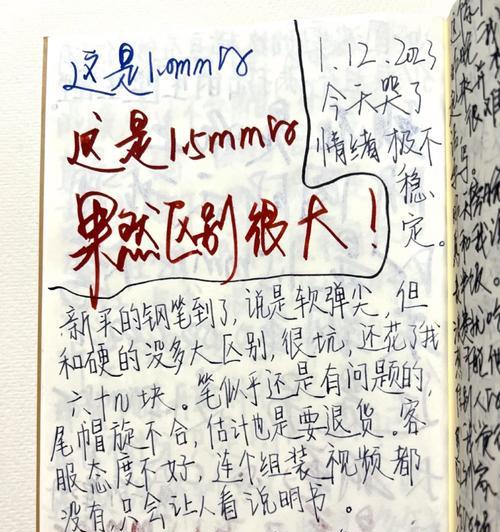 这是1.0mm的
这是1.5mm的
果然区别很大！
1.12.2023
今天哭了
情绪极不
稳
定。
新买的钢笔到了，说是软弹尖，但
和硬的没多大区别，很坑，还花了我
六十几块。笔似乎还是有问题的，
尾帽旋不合，估计也是要退货。客
服态度不好，连个组装视频都
没有，只会让人看说明书。